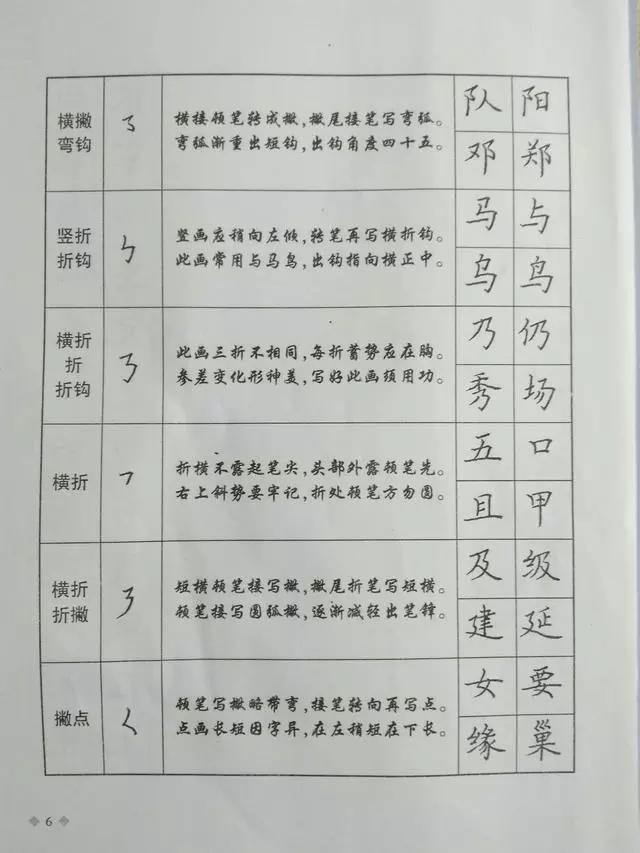 横撇
弯钩
㇌
横接顿笔转成撇，撇尾接笔写弯弧。
弯弧渐重出短钩，出钩角度四十五。
队 阳
邓 郑
竖折
折钩
㇉
竖画应稍向左倾，转笔再写横折钩。
此画常用与马鸟，出钩指向横正中。
马 与
乌 鸟
横折
折
折钩
㇡
此画三折不相同，每折蓄势应在胸。
参差变化形神美，写好此画须用功。
乃 仍
秀 场
横折
㇕
折横不露起笔尖，头部外露顿笔先。
右上斜势要牢记，折处顿笔方勿圆。
五 口
且 甲
横折
折撇
㇋
短横顿笔接写撇，撇尾折笔写短横。
顿笔接写圆弧撇，逐渐减轻出笔锋。
及 级
建 延
撇点
㇛
顿笔写撇略带弯，接笔转向再写点。
点画长短因字异，在左稍短在下长。
女 要
缘 巢
6